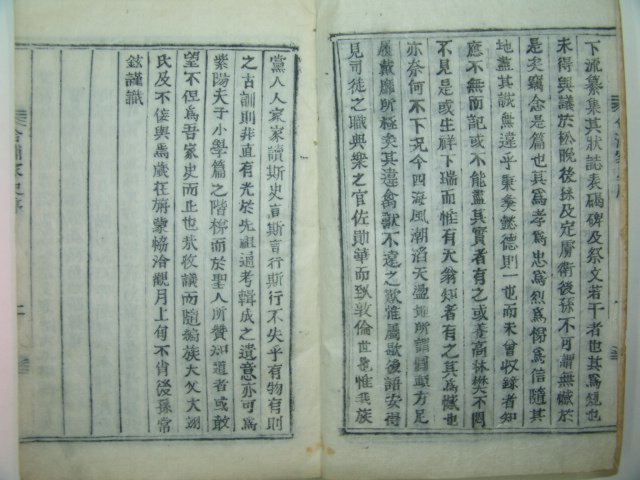 下流纂集其狀誌表碣碑及祭文若干者也其爲規也
未得與議於松晩後孫及定屬衛後孫不可謂無憾於
是矣竊念是篇也其爲孝爲忠爲烈爲悌爲信隨其
地盡其誠無違乎秉彛懿德則一也而未曾収錄者知
應不無而記或不能盡其實者有之或華高林樊不聞
不見是或生祥下瑞而惟有天翁知者有之其爲憾也
亦奈何不下况今四海風潮滔天盪地所謂圓頭方足
履戴靡所極矣其違禽獸不遠之歎惟屬歇後語安得
見司徒之職典樂之官佐勛華而致敦倫世也惟我族
黨人人家家讀斯史言斯言行斯行不失乎有物有則
之古訓則非直有光於先祖過考輯成之遺意亦可爲
紫陽夫子小學篇之階梯而於聖人所贊知道者或敢
望不但爲吾家史而止也恭攷議而隨編族大父大翊
氏及不侫與焉歲在旃蒙恊洽觀月上旬不肖後孫常
鉉謹識